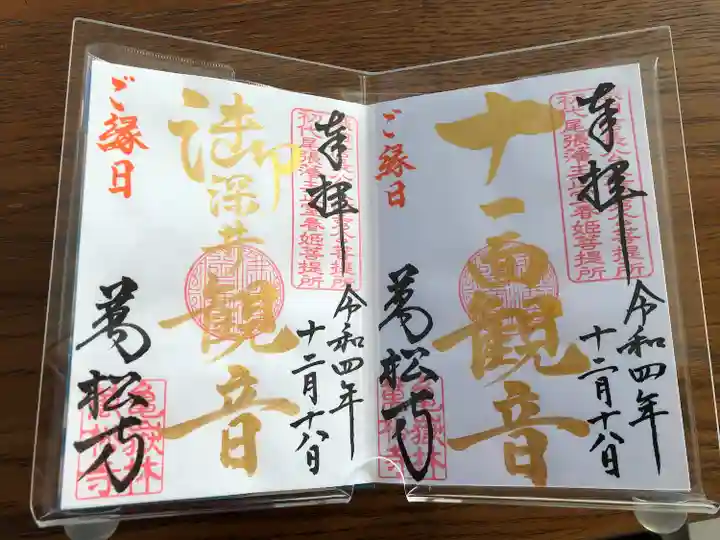 奉拝
十一面観音
ご縁日
令和四年
十二月十八日
萬松寺
亀嶽林
萬松寺
初代尾張藩主正室春姫菩提所
奉拝
御深井観音
ご縁日
令和四年
十二月十八日
萬松寺
亀嶽林
萬松寺
初代尾張藩主正室春姫菩提所